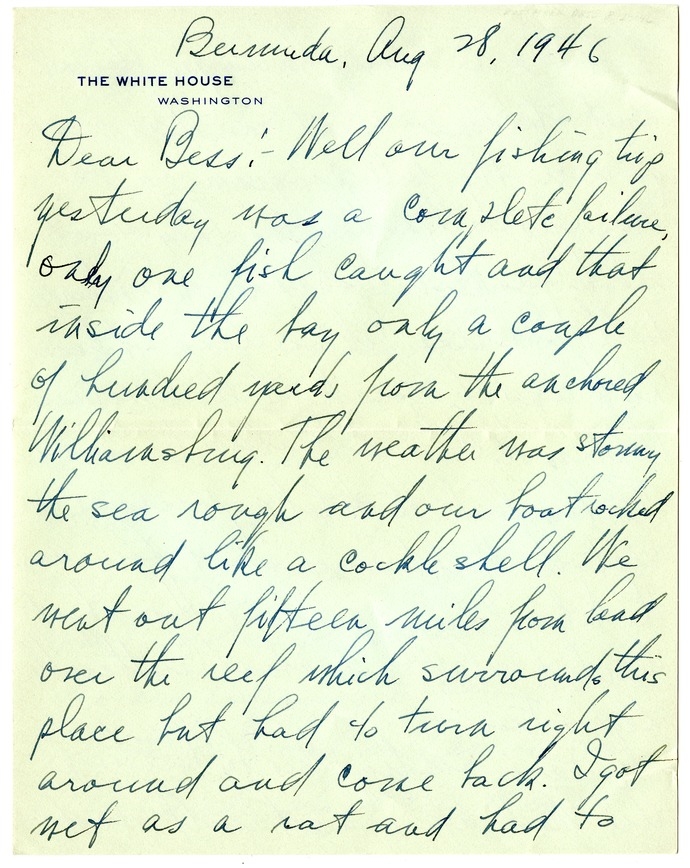 Bermuda, Aug 28, 1946
THE WHITE HOUSE
WASHINGTON
Dear Bess:- Well our fishing trip
yesterday was a complete failure,
only one fish caught and that
inside the bay only a couple
of hundred yards from the anchored
Williamsburg. The weather was stormy
the sea rough and our boat rocked
around like a cockle shell. We
went out fifteen miles from land
over the reef which surrounds this
place but had to turn right
around and come back. I got
wet as a rat and had to